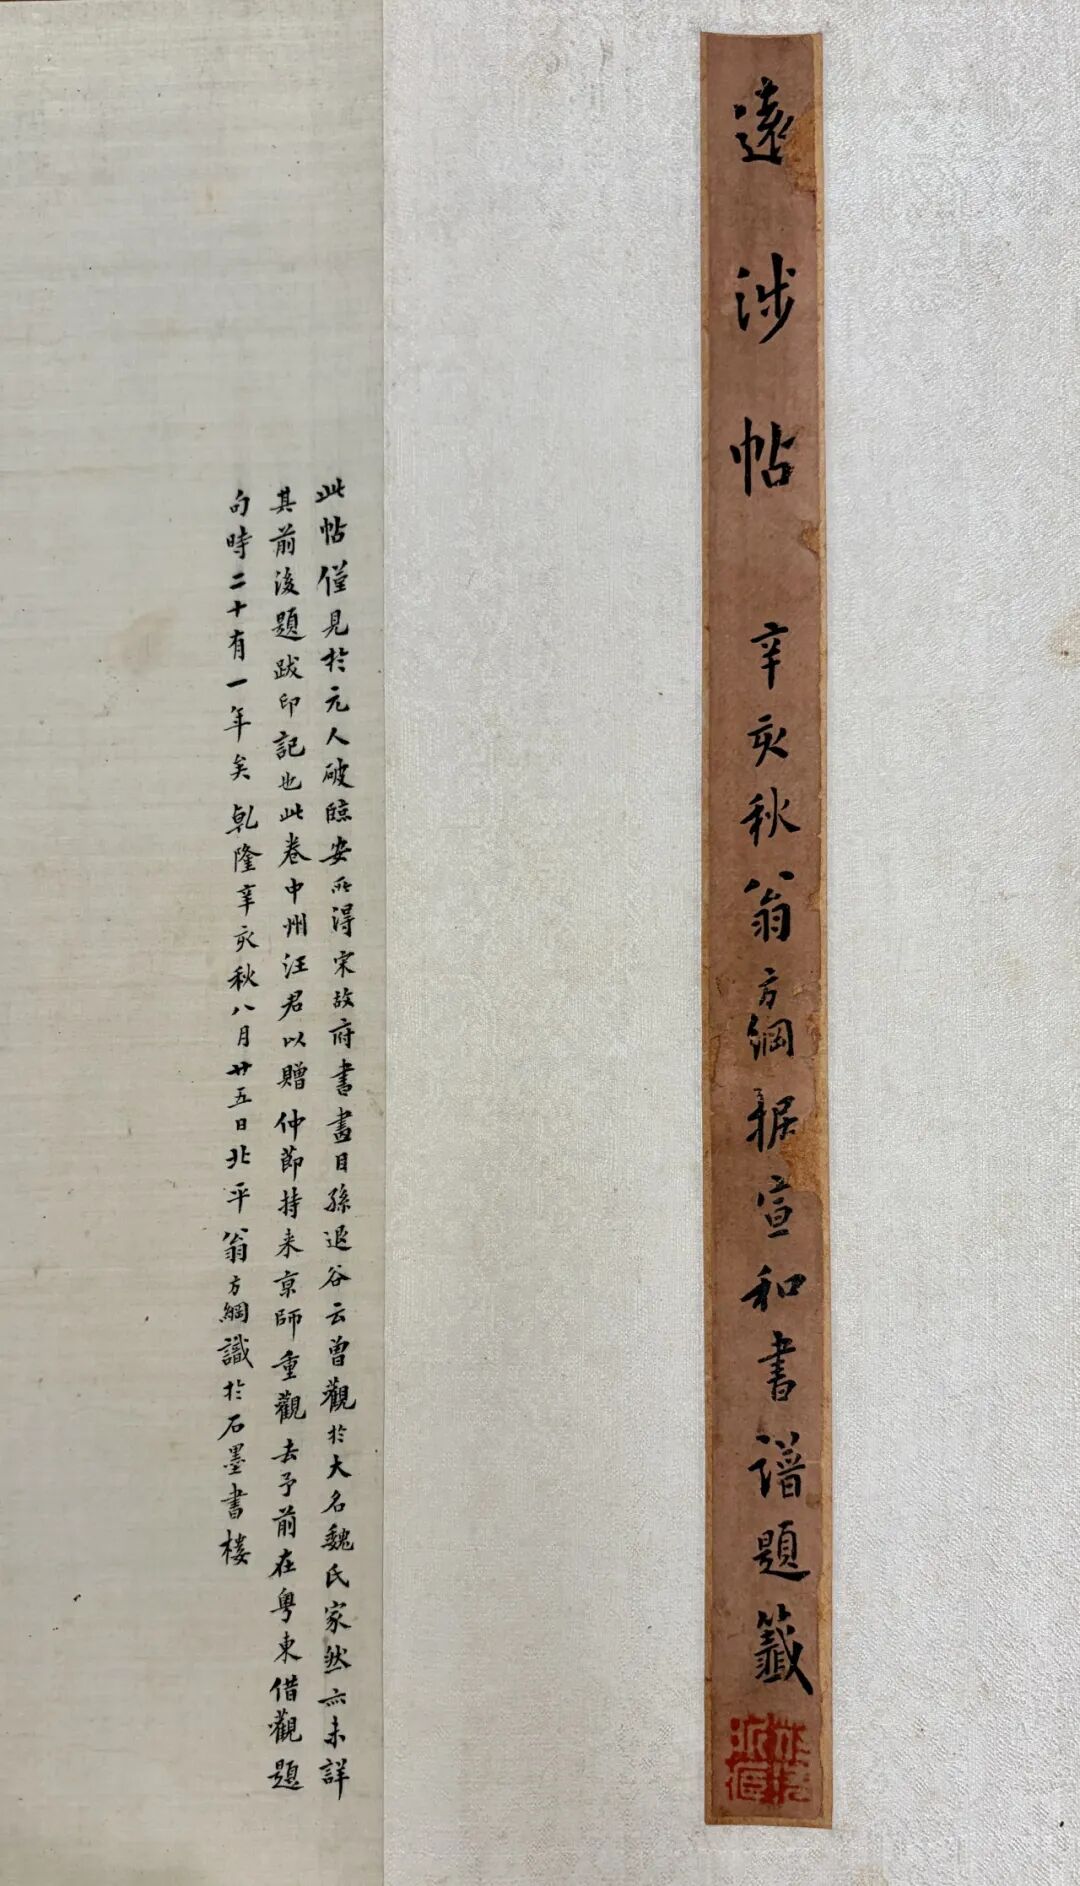 遠涉帖 辛亥秋翁方綱據宣和書譜題籤
此帖僅見於元人破臨安所得宋故府書畫目孫退谷云曾觀於大名魏氏家然亦未詳
其前後題跋印記也此卷中州汪君以贈仲節持来京師重觀去予前在粵東借觀題
句時二十有一年矣乾隆辛亥秋八月廿五日北平翁方綱識於石墨書樓